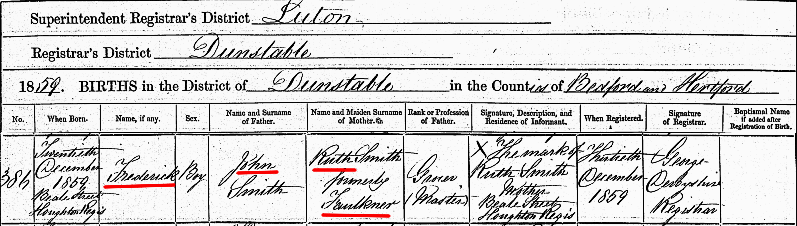 Superintendent Registrar's District Luton
Registrar's District Dunstable
1859. BIRTHS in the District of Dunstable in the Counties of Bedford and Hertford
No. When Born. Name, if any. Sex. Name and Surname of Father. Name and Maiden Surname of Mother. Rank or Profession of Father. Signature, Description, and Residence of Informant. When Registered. Signature of Registrar. Baptismal Name if added after Registration of Birth.
386
Twentieth
December
1859
Beale Street
Houghton Regis
Frederick
Boy
John
Smith
Ruth Smith
formerly
Faulkner
Grocer
(Master)
X The mark of
Ruth Smith
Mother
Beale Street
Houghton Regis
Thirtieth
December
1859
George
Derbyshire
Registrar